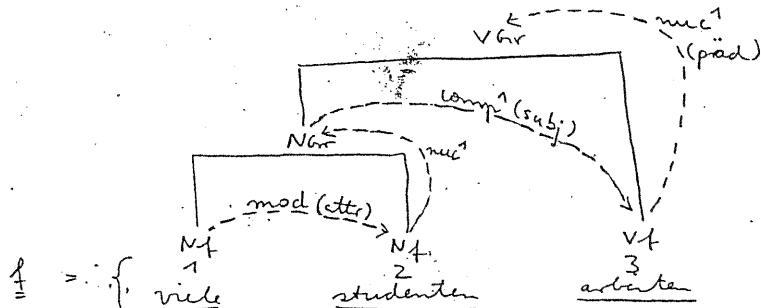 nuc¹
VGr (präd)
comp¹ (subj)
NGr nuc¹
mod (attr)
Nf Nf Vf
1 2 3
f = { viele studenten arbeiten